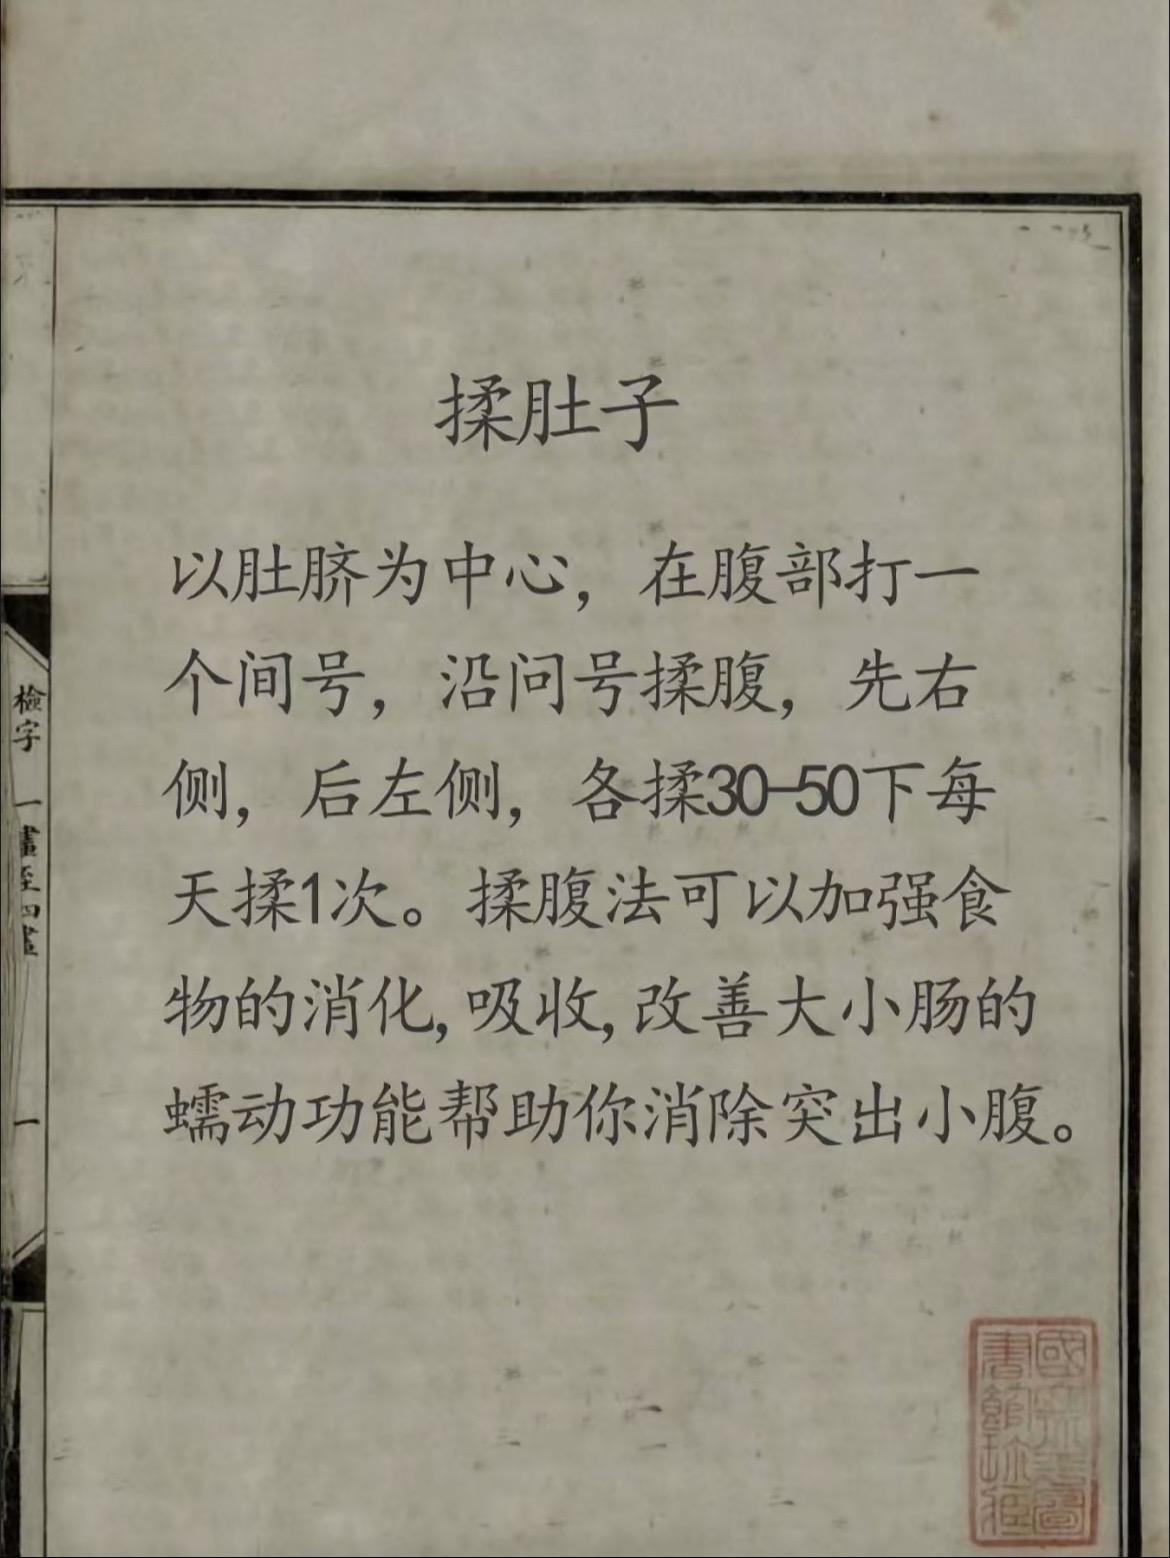 揉肚子
以肚脐为中心，在腹部打一
个间号，沿问号揉腹，先右
侧，后左侧，各揉30-50下每
天揉1次。揉腹法可以加强食
物的消化,吸收,改善大小肠的
蠕动功能帮助你消除突出小腹。
檢字
一畫至四畫
一